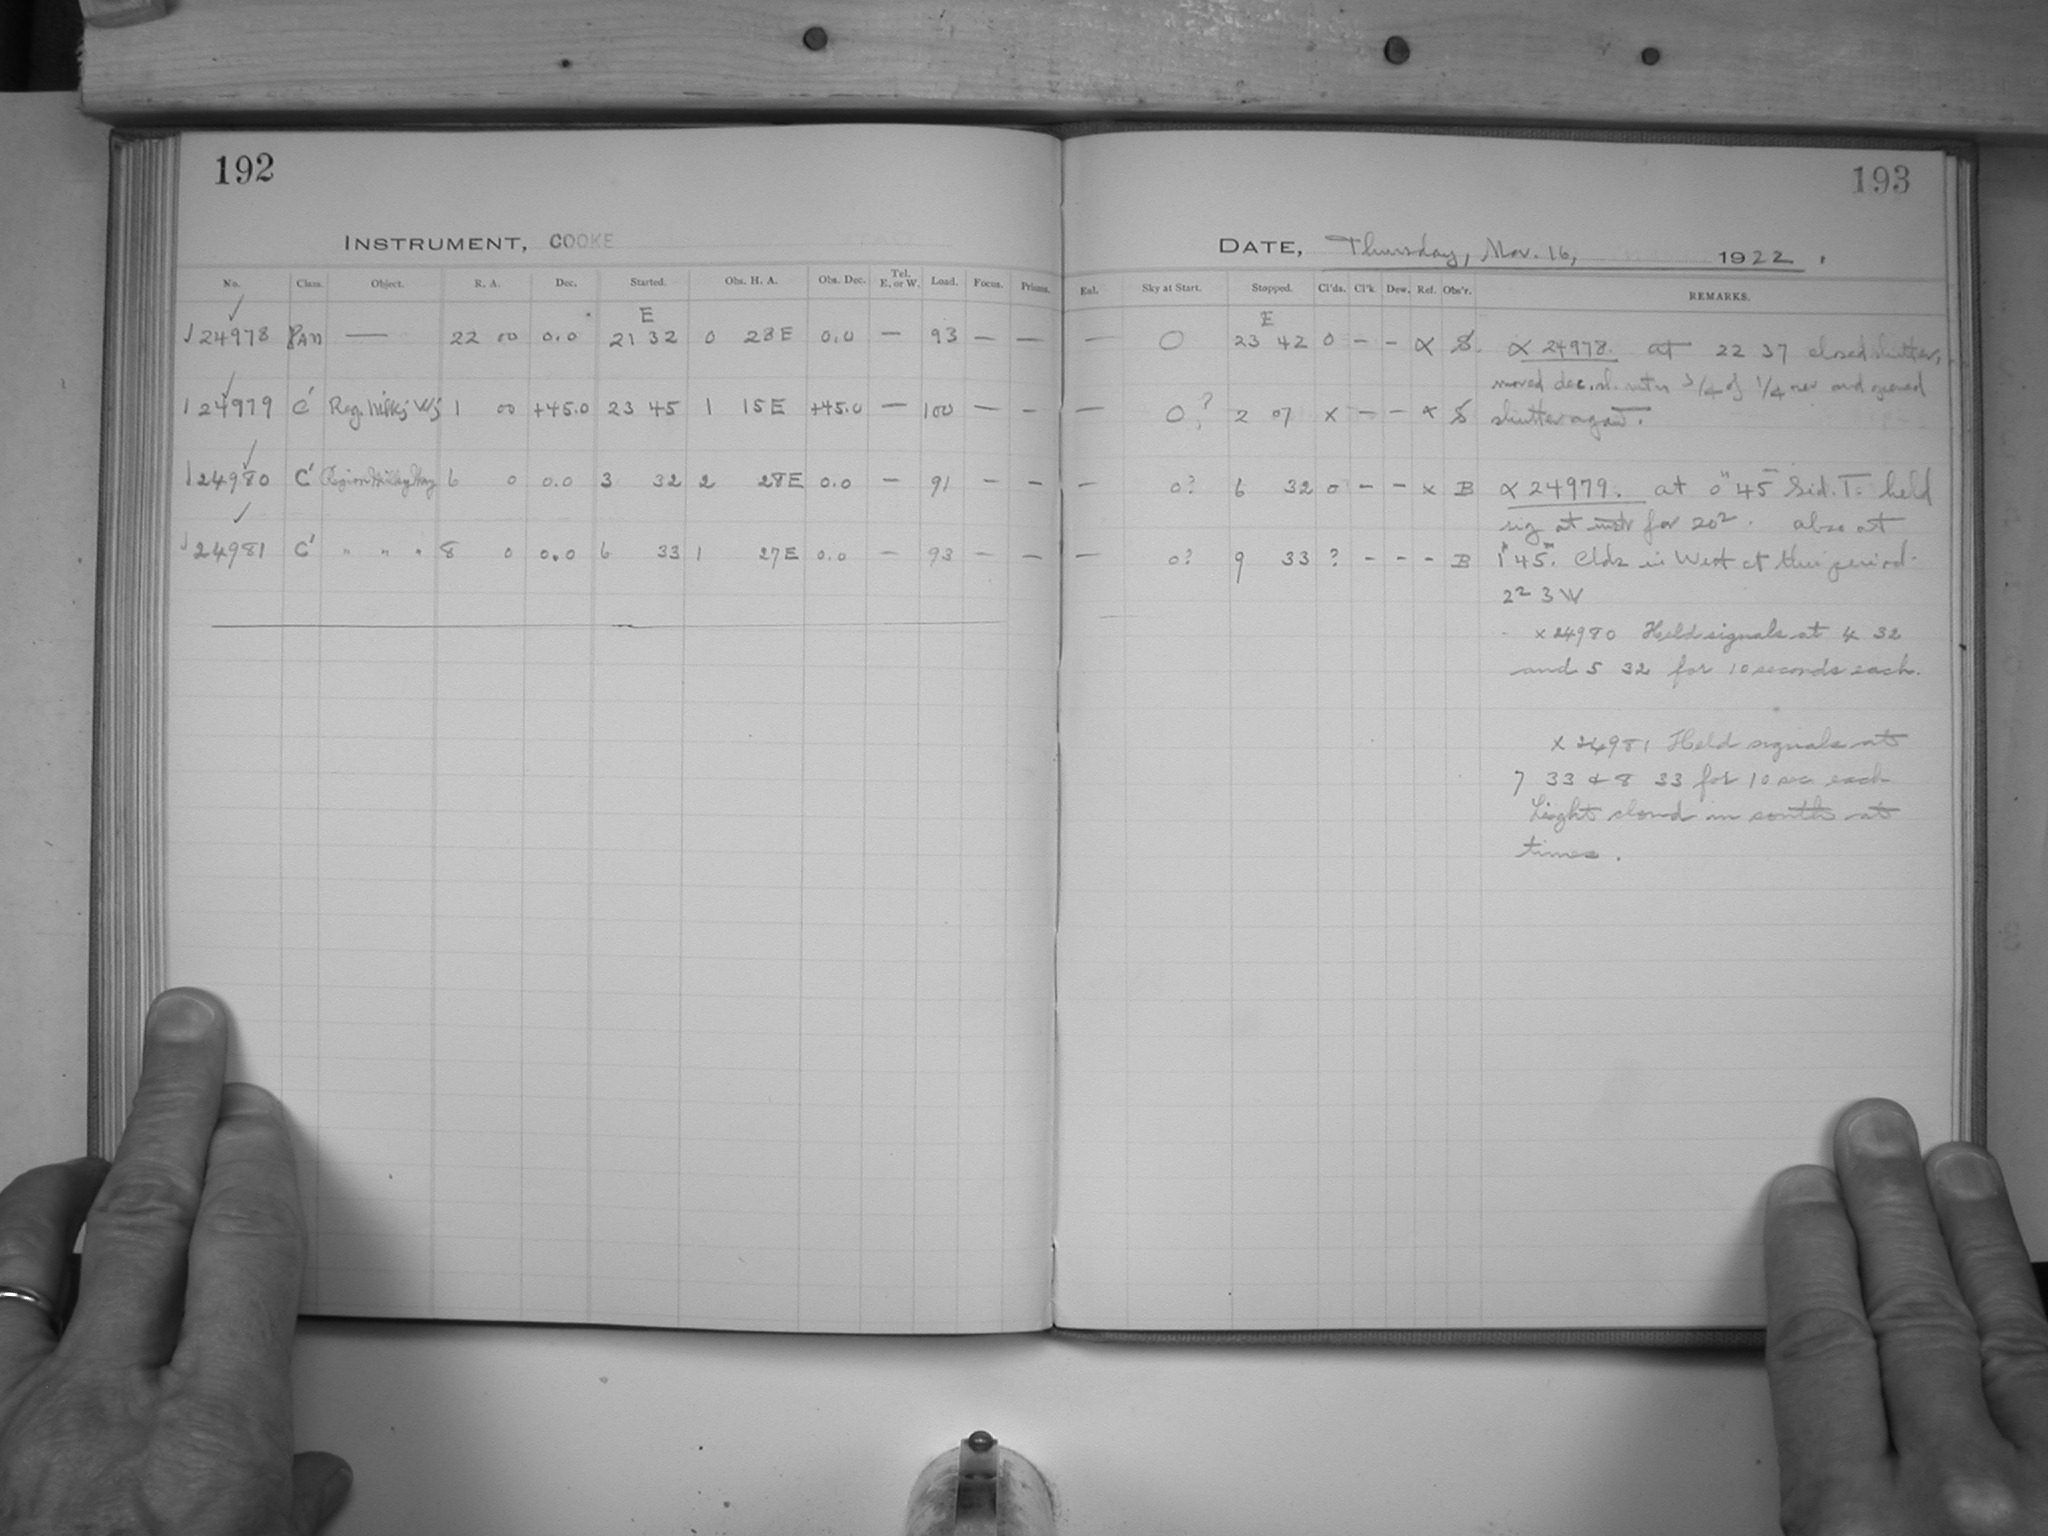 192
193
INSTRUMENT, COOKE
DATE, Thursday, Nov. 16, 1922.
No. Class. Object. R. A. Dec. Started. Obs. H. A. Obs. Dec. Tel. E. or W. Load. Focus. Prisms.
Eal. Sky at Start. Stopped. Cl'ds. Cl'k. Dew. Ref. Obs'r. REMARKS.
E
E
24978 — 22 00 0.0 21 32 0 28E 0.0 — 93 — —
— 0 23 42 0 - - α S. α 24978. at 22 37 closed shutter,
and opened
24979 C' Reg. Milky Wy 1 00 +45.0 23 45 1 15E +45.0 — 100 — -
— 0? 2 07 x - - α S shutter again.
24980 C' Region Milky Way 6 0 0.0 3 32 2 28E 0.0 - 91 - -
- 0? 6 32 0 - - x B α 24979. at 0h 45m Sid. T. held
sig at instr for 20s. also at
24981 C' " " " 8 0 0.0 6 33 1 27E 0.0 - 93 - -
— 0? 9 33 ? - - - B 1h 45m. Clds in West at this period.
x 24980 Held signals at 4 32
and 5 32 for 10 seconds each.
x 24981 Held signals at
7 33 & 8 33 for 10 sec each
Light cloud in south at
times.